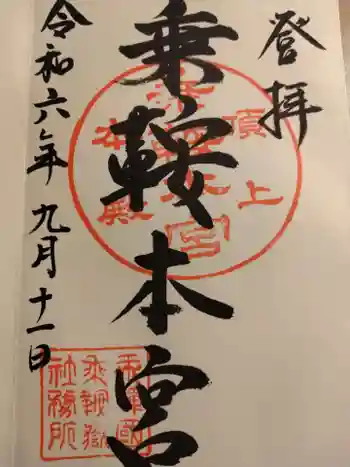 登拝
乗鞍本宮
令和六年九月十一日
頂上
乗鞍本宮
本殿
乗鞍嶽
社務所